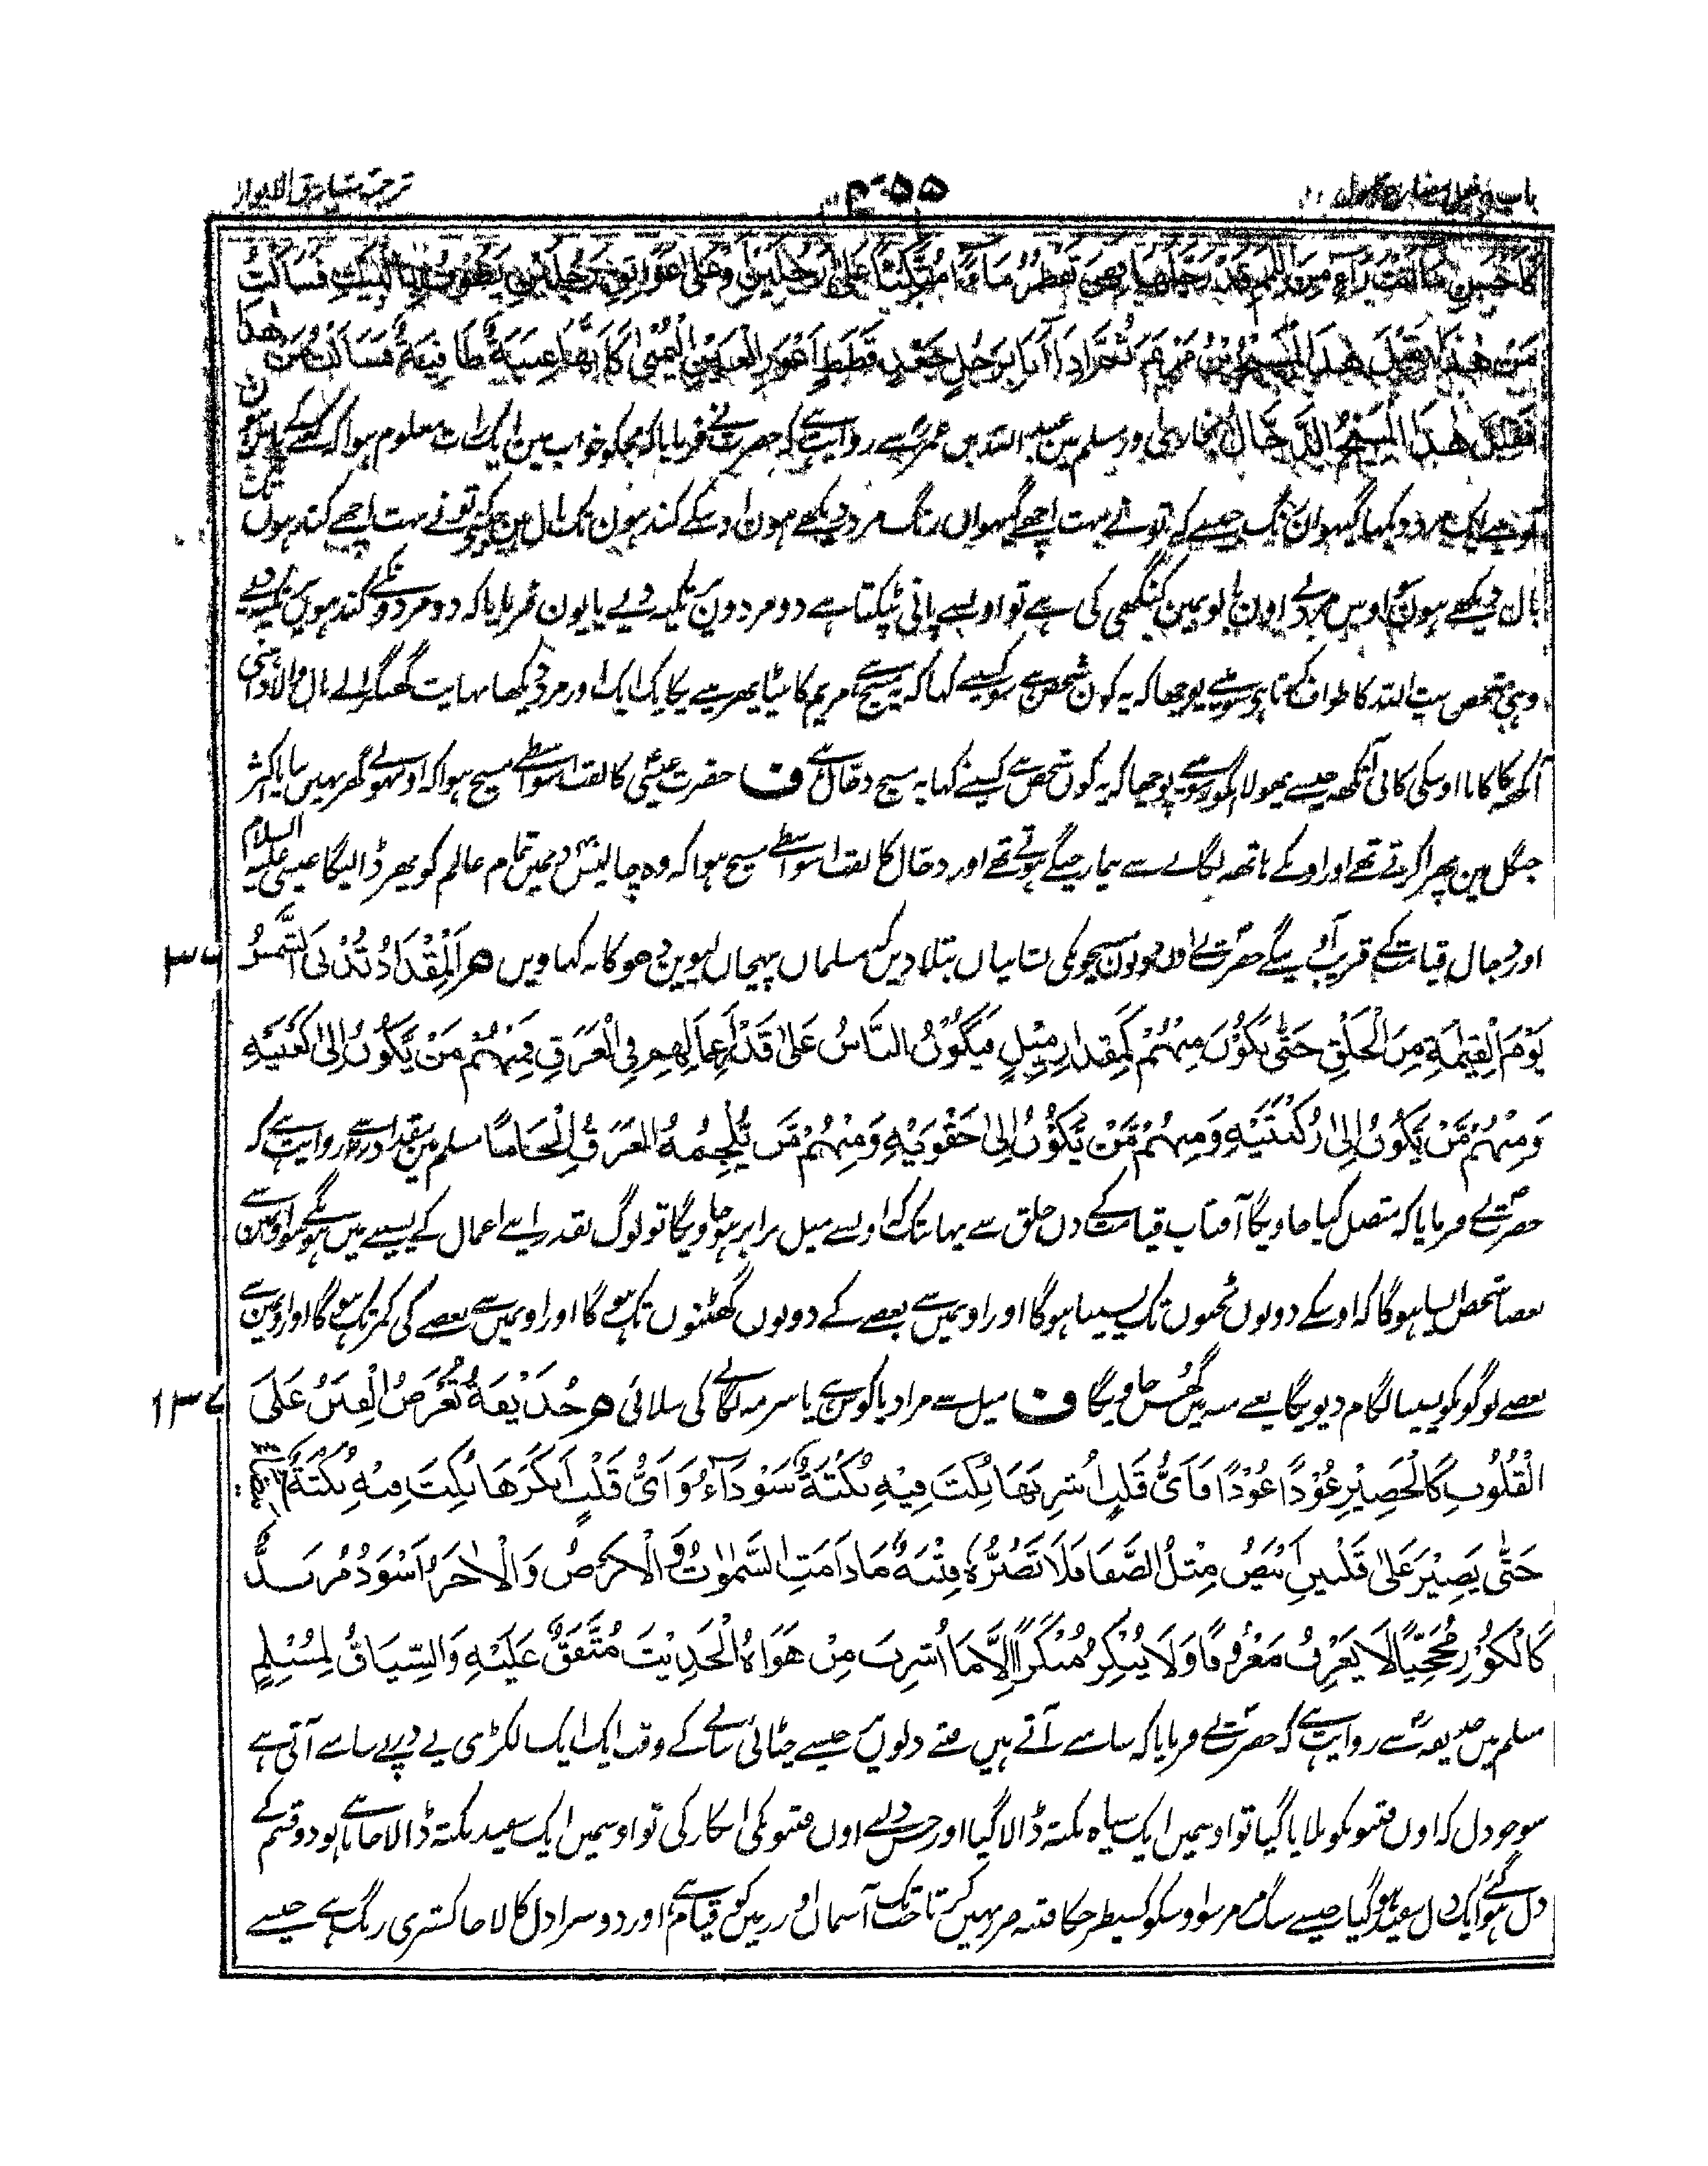 ترجمہ مشارق الانوار
كَاَحْسَنِ مَا اَنْتَ رَاءٍ مِنَ اللِّمَمِ قَدْ رَجَّلَهَا فَهِيَ تَقْطُرُ مَاءً مُتَّكِئًا عَلٰى رَجُلَيْنِ اَوْ عَلٰى عَوَاتِقِ رَجُلَيْنِ يَطُوْفُ بِالْبَيْتِ فَسَاَلْتُ
مَنْ هٰذَا فَقِيْلَ هٰذَا الْمَسِيْحُ بْنُ مَرْيَمَ ثُمَّ اِذَا اَنَا بِرَجُلٍ جَعْدٍ قَطَطٍ اَعْوَرِ الْعَيْنِ الْيُمْنٰى كَاَنَّهَا عِنَبَةٌ طَافِيَةٌ فَسَاَلْتُ مَنْ هٰذَا
فَقِيْلَ هٰذَا الْمَسِيْحُ الدَّجَّالُ بخاری اور مسلم مین عبد اللہ بن عمر سے روایت ہے کہ حضرت نے فرمایا کہ مجکو خواب مین ایک رات معلوم ہوا کہ کعبے کے پاس ہوں
تو مینے ایک مرد دیکھا گیہوان رنگ جیسے کہ تو نے بہت اچھے گیہوان رنگ مرد دیکھے ہون اوسکے کندہون تک بال ہین جیسے تو نے بہت اچھے کندہوں تک
بال دیکھے ہون اوس مرد نے اون بالو نمین کنگھی کی ہے تو اونسے پانی ٹپکتا ہے دو مردون پر تکیہ دیے یا یون فرمایا کہ دو مردونکے کندہوں پر تکیہ دیے
وہی شخص بیت اللہ کا طواف کرتا ہے سو مینے پوچھا کہ یہ کون شخص ہے سو کسینے کہا کہ یہ مسیح ہے مریم کا بیٹا پھر مینے یکایک ایک اور مرد دیکھا نہایت گھنگرالے بال والا داہنی
آنکھ کا کانا اوسکی کانی آنکھ جیسے پھولا انگور سو مینے پوچھا کہ یہ کون شخص ہے کسینے کہا یہ مسیح دجال ہے ف حضرت عیسٰی کا لقب اسواسطے مسیح ہوا کہ اونہونے گھر نہیں بنایا اکثر
جنگل مین پھرا کرتے تھے اور اونکے ہاتھ لگانے سے بیمار چنگے ہوتے تھے اور دجال کا لقب اسواسطے مسیح ہوا کہ وہ چالیس دنمیں تمام عالم کو پھر ڈالیگا عیسی علیہ السلام
اور دجال قیامت کے قریب آویںگے حضرت نے ان دونون مسیحونکی نشانیاں بتلادیں کہ مسلماں پہچاں لیویں دھوکا نہ کہاویں ھ اَلْمِقْدَادُ تُدْنَى الشَّمْسُ
۱۳۶
يَوْمَ الْقِيٰمَةِ مِنَ الْخَلْقِ حَتّٰى تَكُوْنَ مِنْهُمْ كَمِقْدَارِ مِيْلٍ فَيَكُوْنُ النَّاسُ عَلٰى قَدْرِ اَعْمَالِهِمْ فِي الْعَرَقِ فَمِنْهُمْ مَنْ يَّكُوْنُ اِلٰى كَعْبَيْهِ
وَمِنْهُمْ مَّنْ يَّكُوْنُ اِلٰى رُكْبَتَيْهِ وَمِنْهُمْ مَّنْ يَّكُوْنُ اِلٰى حَقْوَيْهِ وَمِنْهُمْ مَّنْ يُّلْجِمُهُ الْعَرَقُ اِلْجَامًا مسلم میں مقداد سے روایت ہے کہ
حضرت نے فرمایا کہ متصل کیا جاویگا آفتاب قیامت کے دں خلق سے یہانتک کہ اونسے میل برابر ہو جاویگا تو لوگ بقدر اپنے اعمال کے پسینے میں ہونگے سو اونمین سے
بعضا شخص ایسا ہوگا کہ اوسکے دونوں ٹخنوں تک پسینا ہوگا اور اونمیں سے بعضے کے دونوں گھٹنوں تک ہوئے گا اور اونمیں سے بعضے کی کمر تک ہوئے گا اور اونمین سے
بعضے لوگونکو پسینا لگام دیویگا یعنے منہ میں گھس جاویگا ف میل سے مراد یا کوس ہے یا سرمہ لگانے کی سلائی ھ حُذَيْفَةُ تُعْرَضُ الْفِتَنُ عَلَى
۱۳۷
الْقُلُوْبِ كَالْحَصِيْرِ عُوْدًا عُوْدًا فَاَيُّ قَلْبٍ اُشْرِبَهَا نُكِتَ فِيْهِ نُكْتَةٌ سَوْدَآءُ وَاَيُّ قَلْبٍ اَنْكَرَهَا نُكِتَ فِيْهِ نُكْتَةٌ
حَتّٰى يَصِيْرَ عَلٰى قَلْبَيْنِ اَبْيَضُ مِثْلُ الصَّفَا فَلَا تَضُرُّهٗ فِتْنَةٌ مَادَامَتِ السَّمٰوٰتُ وَالْاَرْضُ وَالْاٰخَرُ اَسْوَدُ مُرْبَدٌّ
كَالْكُوْزِ مُجَخِّيًا لَا يَعْرِفُ مَعْرُوْفًا وَلَا يُنْكِرُ مُنْكَرًا اِلَّا مَا اُشْرِبَ مِنْ هَوَاهُ الْحَدِيْثَ مُتَّفَقٌ عَلَيْهِ وَالسِّيَاقُ لِمُسْلِمٍ
مسلم میں حذیفہ سے روایت ہے کہ حضرت نے فرمایا کہ سامنے آتے ہیں فتنے دلوں پر جیسے چٹائی بنانے کے وقت ایک ایک لکڑی پے درپے سامنے آتی ہے
سو جو دل کہ اوں فتنونکو پلایا گیا تو اوسمیں ایک سیاہ نکتہ ڈالا گیا اور جس دلنے اوں فتنونکی انکار کی تو اوسمیں ایک سفید نکتہ ڈالا جاتا ہے تو دو قسم کے
دل ہوگئے ایک دل سفید ہو گیا جیسے سنگ مرمر سو اوسکو کسیطرحکا فتنہ ضرر نہیں کرتا جب تک آسمان اور زمین کو قیام ہے اور دوسرا دل کالا خاکستری رنگ ہے جیسے